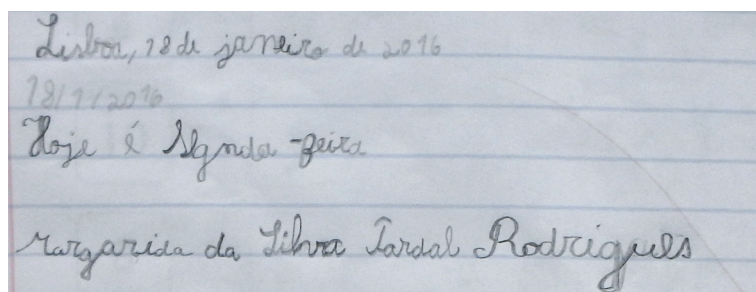 Lisboa, 18 de janeiro de 2016
18/1/2016
Hoje é Sgnda-feira
Margarida da Silva Jardal Rodrigues